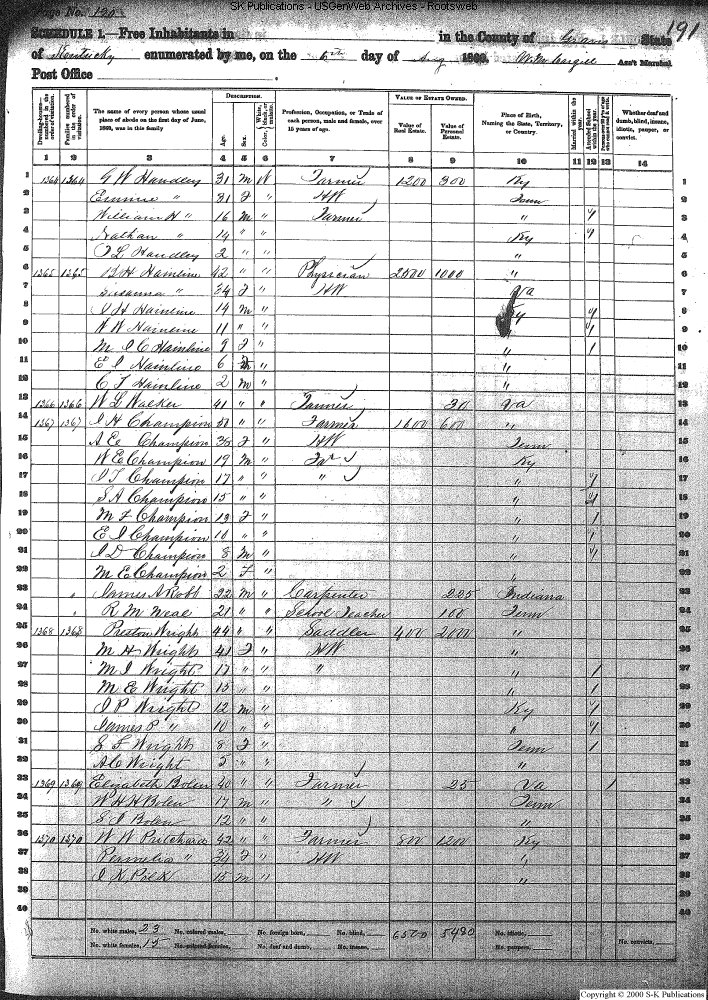 SK Publications - USGenWeb Archives - Rootsweb
Page No. 190
191
SCHEDULE 1.—Free Inhabitants in in the County of State
of Kentucky enumerated by me, on the 6th day of Aug 1860. Ass't Marshal.
Post Office
Dwelling-houses—numbered in the order of visitation.
Families numbered in the order of visitation.
The name of every person whose usual place of abode on the first day of June, 1860, was in this family
DESCRIPTION.
Age.
Sex.
Color,
Profession, Occupation, or Trade of each person, male and female, over 15 years of age.
VALUE OF ESTATE OWNED.
Value of Real Estate.
Value of Personal Estate.
Place of Birth, Naming the State, Territory, or Country.
Married within the year.
Attended School within the year.
Whether deaf and dumb, blind, insane, idiotic, pauper, or convict.
1 2 3 4 5 6 7 8 9 10 11 12 13 14
1 1364 1364 G W Handley 31 m W Farmer 1200 300 Ky 1
2 " 31 F " HW Tenn 2
3 William H " 16 m " Farmer " 3
4 Nathan " 14 " " Ky 4
5 Handley 2 " " " 5
6 1365 1365 B H Hamline 42 " " Physician 2500 1000 " 6
7 Susanna " 34 F " HW Va 7
8 Hamline 14 m " Ky 8
9 Hamline 11 " " " 9
10 M I C Hamline 9 F " " 1 10
11 E I Hamline 6 " " 11
12 C F Hamline 2 m " " 12
13 1366 1366 W L Walker 41 " " 30 Va 13
14 1367 1367 I H Champion " " Farmer 1600 600 " 14
15 A E Champion 38 F " HW Tenn 15
16 W E Champion 19 m " Far Ky 16
17 Champion 17 " " " " 17
18 S A Champion 15 " " " 18
19 M F Champion 13 F " " 1 19
20 E I Champion 10 " " " 1 20
21 I D Champion 8 m " " 21
22 M E Champion 2 F " " 22
23 " James A Robb 22 m " Carpenter 225 Indiana 23
24 " R M Neal 21 " " School Teacher 100 Tenn 24
25 1368 1368 Preston Wright 44 " " Saddler 400 2000 " 25
26 M H Wright 41 F " HW " 26
27 M I Wright 17 " " " " 1 27
28 M E Wright 15 " " " 1 28
29 I P Wright 12 m " Ky 29
30 James P " 10 " " " 30
31 S F Wright 8 F " Tenn 1 31
32 A C Wright 5 " " " 32
33 1369 1369 Elizabeth Bolen 40 " " Farmer 25 Va 1 33
34 W H H Bolen 17 m " " Tenn 34
35 S I Bolen 12 " " " 35
36 1370 1370 W W Pritchard 42 " " Farmer 800 1200 Ky 36
37 Permelia " 34 F " HW " 37
38 I K Polk 15 m " " 38
39 39
40 40
No. white males, 23 No. colored males, No. foreign born, No. blind, 6500 5490 No. idiotic,
No. white females, 15 No. colored females, No. deaf and dumb, No. insane, No. paupers, No. convicts,
Copyright © 2000 S-K Publications